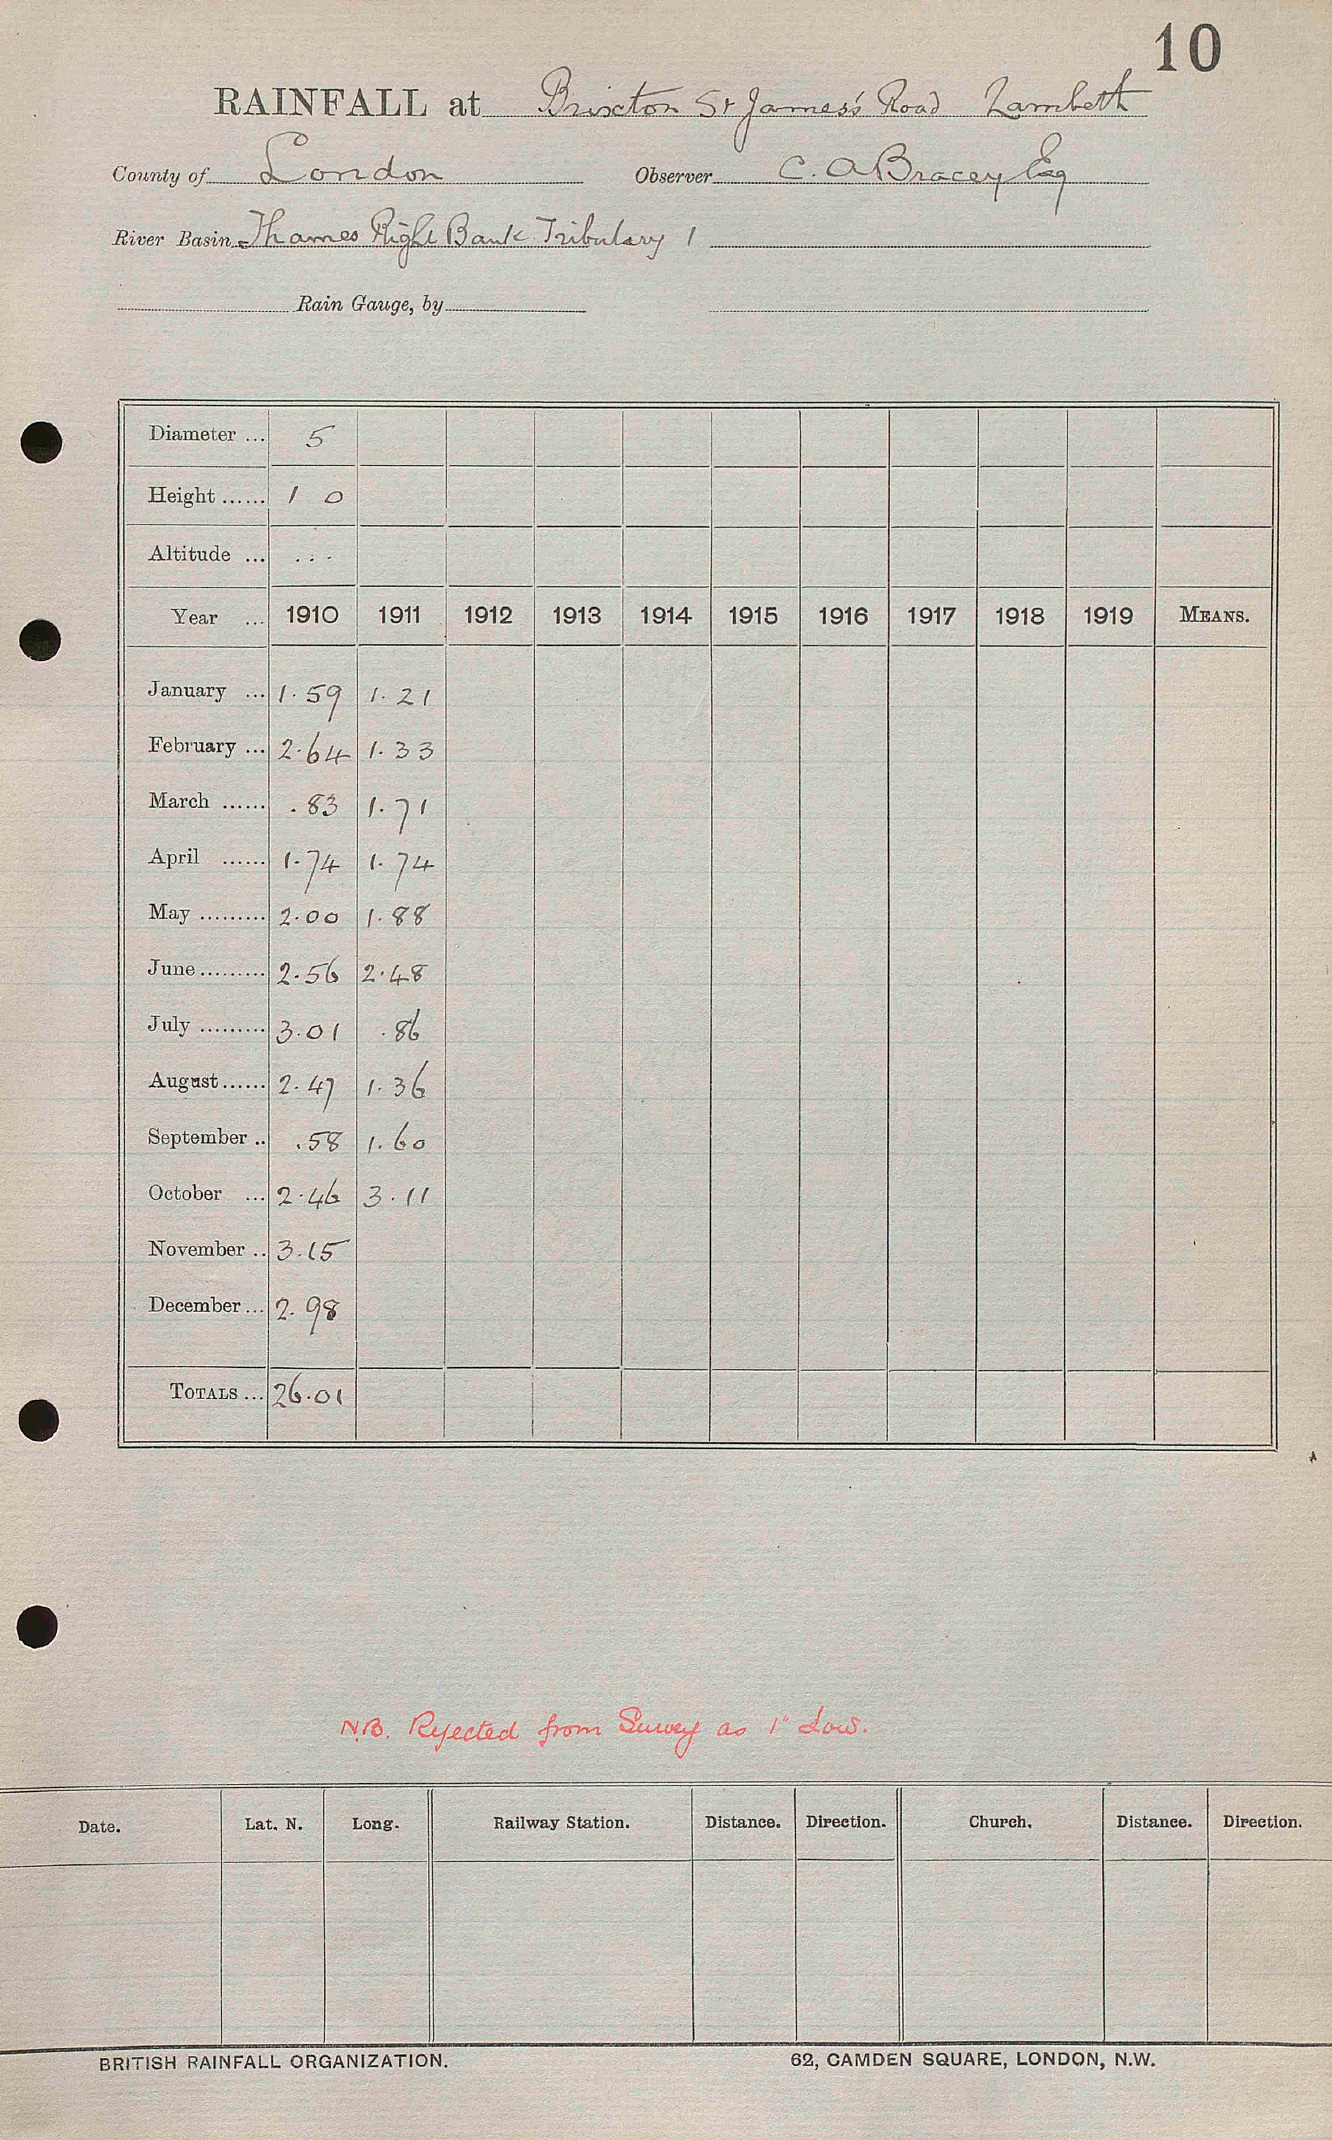 10
RAINFALL at Brixton St James's Road Lambeth
County of London Observer C. A Bracey Esq
River Basin Thames Right Bank Tributary 1
Rain Gauge, by
Diameter ... 5
Height ...... 1 0
Altitude ... ...
Year ... 1910 1911 1912 1913 1914 1915 1916 1917 1918 1919 MEANS.
January ... 1.59 1.21
February ... 2.64 1.33
March ...... .83 1.71
April ...... 1.74 1.74
May ......... 2.00 1.88
June ......... 2.56 2.48
July ......... 3.01 .86
August ...... 2.47 1.36
September .. .58 1.60
October ... 2.46 3.11
November .. 3.15
December ... 2.98
TOTALS ... 26.01
N.B. Rejected from Survey as 1" Low.
Date. Lat. N. Long. Railway Station. Distance. Direction. Church. Distance. Direction.
BRITISH RAINFALL ORGANIZATION. 62, CAMDEN SQUARE, LONDON, N.W.